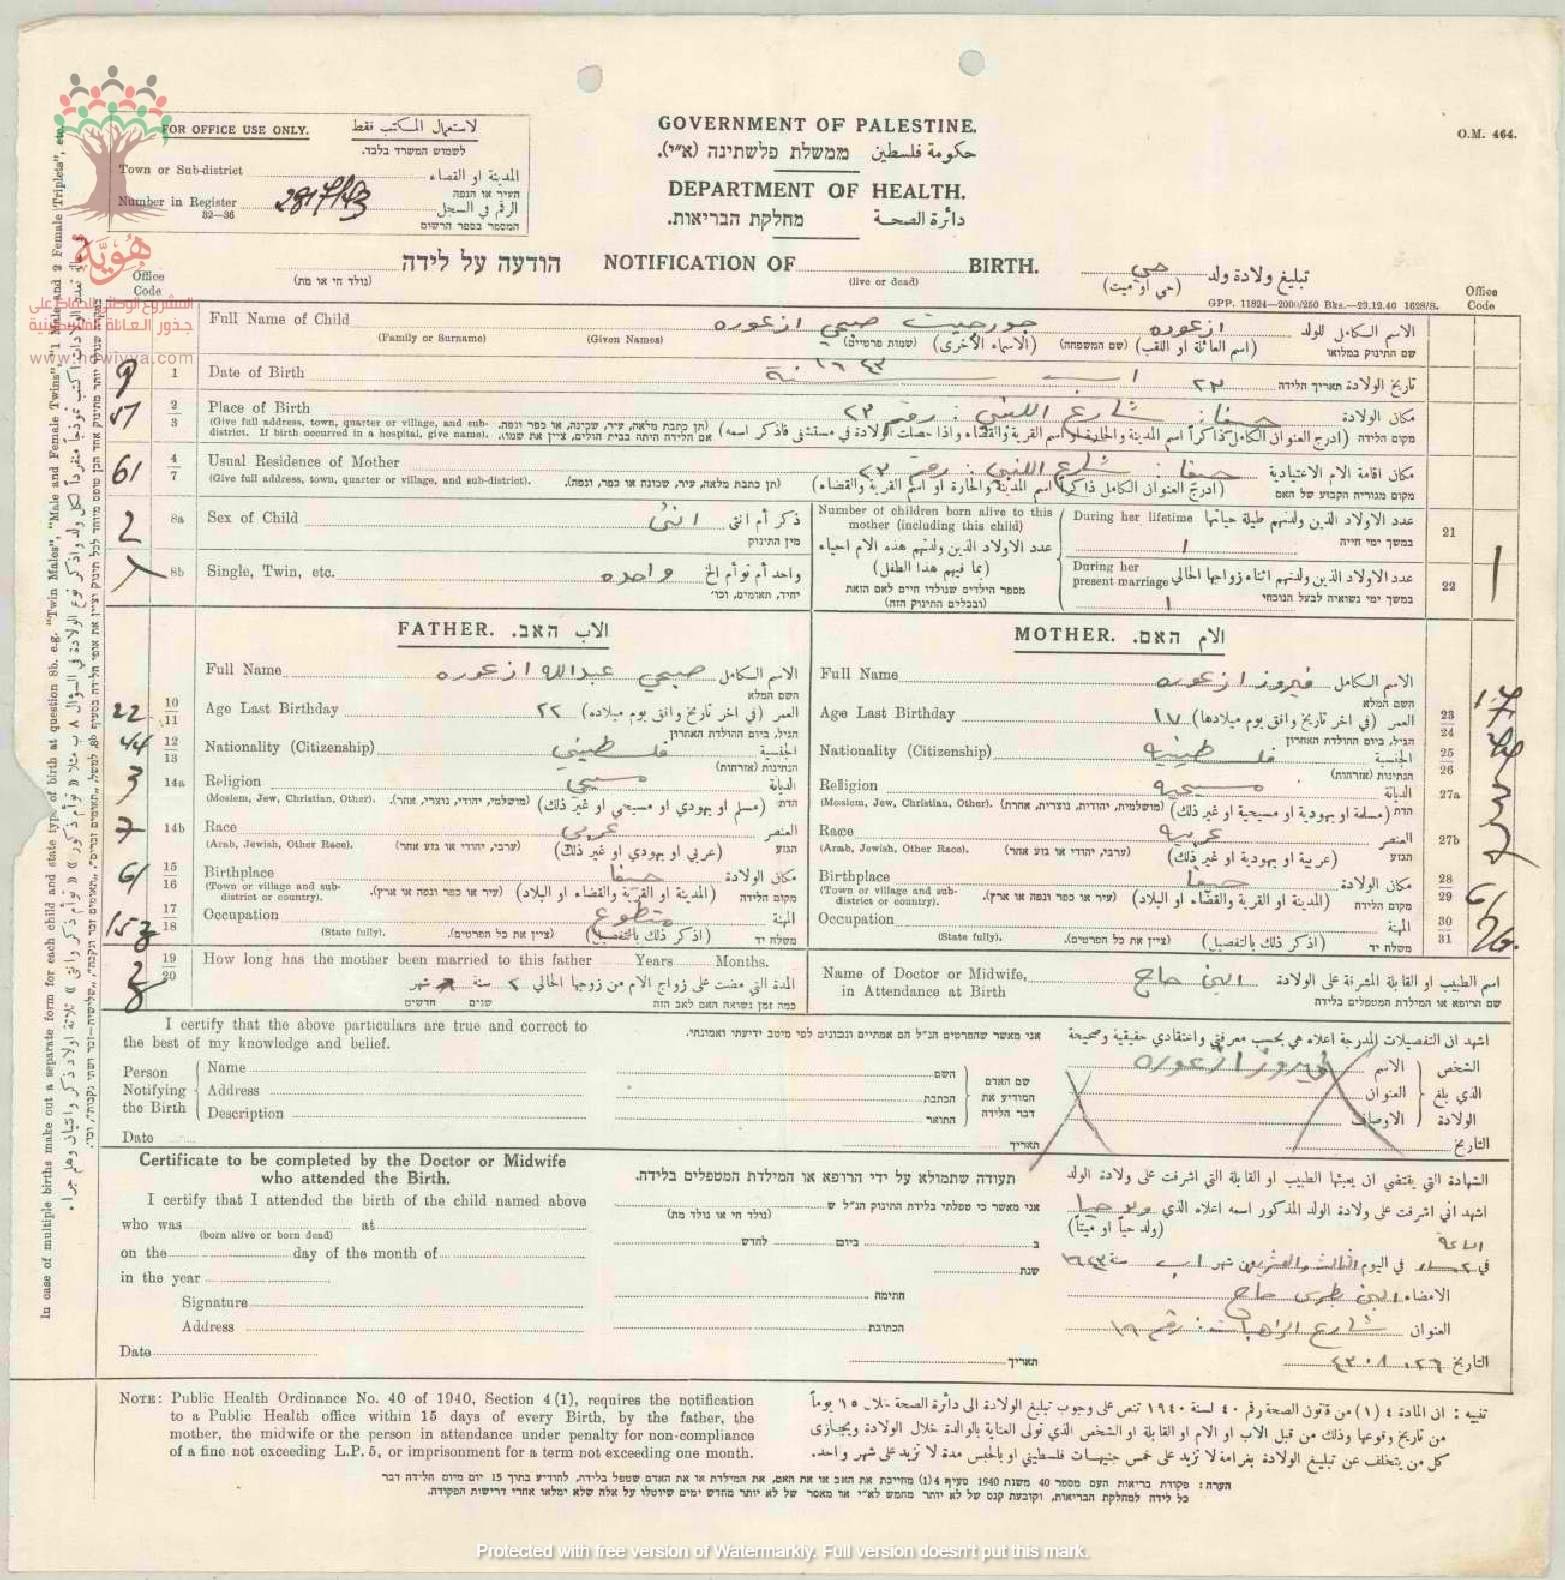 O.M. 464.
FOR OFFICE USE ONLY. لاستعمال المكتب فقط
לשמוש המשרד בלבד.
Town or Sub-district المدينة او القضاء
העיר או הנפה
Number in Register 2817/43 الرقم في السجل
82—36 המספר בספר הרשום
GOVERNMENT OF PALESTINE.
حكومة فلسطين ממשלת פלשתינה (א״י).
DEPARTMENT OF HEALTH.
دائرة الصحة מחלקת הבריאות.
הודעה על לידה NOTIFICATION OF BIRTH. تبليغ ولادة ولد حي
(נולד חי או מת) (live or dead) (حي او ميت)
GPP. 11824—2000/250 Bks.—23.12.40 1628/S.
Office Code
Office Code
هُوِيَّة
المشروع الوطني للحفاظ على
جذور العائلة الفلسطينية
www.howiyya.com
Full Name of Child جورجيت صبحي ازعوره ازعوره الاسم الكامل للولد
(Family or Surname) (Given Names) שמות פרטיים (الاسماء الأخرى) (שם המשפחה) (اسم العائلة او اللقب) שם התינוק במלואו
9 1 Date of Birth ٢٣ اب سنة ١٩٤٣ تاريخ الولادة תאריך הלידה
51 2/3 Place of Birth حيفا: شارع اللنبي: رقم ٢٣ مكان الولادة
(Give full address, town, quarter or village, and sub-district. If birth occurred in a hospital, give name). (תן כתבת מלאה, עיר, שכונה, או כפר ונפה. אם הלידה היתה בבית חולים, ציין את שמו). (ادرج العنوان الكامل ذاكراً اسم المدينة والحارة او اسم القرية والقضاء واذا حصلت الولادة في مستشفى فاذكر اسمه) מקום הלידה
61 4/7 Usual Residence of Mother حيفا: شارع اللنبي: رقم ٢٣ مكان اقامة الام الاعتيادية
(Give full address, town, quarter or village, and sub-district). (תן כתבת מלאה, עיר, שכונה או כפר, ונפה). (ادرج العنوان الكامل ذاكراً اسم المدينة والحارة او اسم القرية والقضاء) מקום מגוריה הקבוע של האם
2 8a Sex of Child انثى ذكر أم انثى
מין התינוק
8b Single, Twin, etc. واحده واحد أم توأم الخ
יחיד, תאומים, וכו׳
Number of children born alive to this mother (including this child)
عدد الاولاد الذين ولدتهم هذه الام احياء (بما فيهم هذا الطفل)
מספר הילדים שנולדו חיים לאם הזאת (ובכללם התינוק הזה)
During her lifetime عدد الاولاد الذين ولدتهم طيلة حياتها 21
١ במשך ימי חייה
During her present marriage عدد الاولاد الذين ولدتهم اثناء زواجها الحالي 22 1
١ במשך ימי נשואיה לבעל הנוכחי
FATHER. الاب האב.
Full Name صبحي عبدالله ازعوره الاسم الكامل
השם המלא
22 10/11 Age Last Birthday ٢٢ العمر (في اخر تاريخ وافق يوم ميلاده)
הגיל, ביום ההולדת האחרון
44 12/13 Nationality (Citizenship) فلسطيني الجنسية
הנתינות (אזרחות)
3 14a Religion مسيحي الديانة
(Moslem, Jew, Christian, Other). (מושלמי, יהודי, נוצרי, אחר). (مسلم او يهودي او مسيحي او غير ذلك) הדת
7 14b Race عربي العنصر
(Arab, Jewish, Other Race). (ערבי, יהודי או גזע אחר) (عربي او يهودي او غير ذلك) הגזע
61 15/16 Birthplace حيفا مكان الولادة
(Town or village and sub-district or country). (עיר או כפר ונפה או ארץ). (المدينة او القرية والقضاء او البلاد) מקום הלידה
17/18 Occupation متطوع المهنة
(State fully). (ציין את כל הפרטים). (اذكر ذلك بالتفصيل) משלח יד
19/20 How long has the mother been married to this father Years Months.
المدة التي مضت على زواج الام من زوجها الحالي ٢ سنة شهر
כמה זמן נשואה האם לאב הזה שנים חדשים
MOTHER. الام האם.
Full Name فيروز ازعوره الاسم الكامل
השם המלא
Age Last Birthday ١٧ العمر (في اخر تاريخ وافق يوم ميلادها) 23/24 17
הגיל, ביום ההולדת האחרון
Nationality (Citizenship) فلسطينيه الجنسية 25/26
הנתינות (אזרחות)
Religion مسيحيه الديانة 27a
(Moslem, Jew, Christian, Other). (מושלמית, יהודית, נוצרית, אחרת). (مسلمة او يهودية او مسيحية او غير ذلك) הדת
Race عربيه العنصر 27b
(Arab, Jewish, Other Race). (ערבי, יהודי או גזע אחר) (عربية او يهودية او غير ذلك) הגזע
Birthplace حيفا مكان الولادة 28/29
(Town or village and sub-district or country). (עיר או כפר ונפה או ארץ). (المدينة او القرية والقضاء او البلاد) מקום הלידה
Occupation المهنة 30/31
(State fully). (ציין את כל הפרטים). (اذكر ذلك بالتفصيل) משלח יד
Name of Doctor or Midwife, in Attendance at Birth حاج اسم الطبيب او القابلة المشرفة على الولادة
שם הרופא או המילדת המטפלים בלידה
I certify that the above particulars are true and correct to the best of my knowledge and belief.
אני מאשר שהפרטים הנ״ל הם אמתיים ונכונים לפי מיטב ידיעתי ואמונתי.
اشهد ان التفصيلات المدرجة اعلاه هي بحسب معرفتي واعتقادي حقيقية وصحيحة
Person Notifying the Birth Name Address Description
Date
שם האדם המודיע את דבר הלידה השם הכתבת התואר
תאריך
الشخص الذي بلغ الولادة الاسم فيروز ازعوره
العنوان
الاوصاف
التاريخ
Certificate to be completed by the Doctor or Midwife who attended the Birth.
I certify that I attended the birth of the child named above
who was at
(born alive or born dead)
on the day of the month of
in the year
Signature
Address
Date
תעודה שתמולא על ידי הרופא או המילדת המטפלים בלידה.
אני מאשר כי טפלתי בלידת התינוק הנ״ל ש
(נולד חי או נולד מת)
ב ביום לחדש
שנת
חתימה
הכתובת
תאריך
الشهادة التي يقتضي ان يعبئها الطبيب او القابلة التي اشرفت على ولادة الولد
اشهد اني اشرفت على ولادة الولد المذكور اسمه اعلاه الذي ولد حيا
(ولد حياً او ميتاً)
الساعة
في اليوم الثالث والعشرين من شهر اب سنة ١٩٤٣
الامضاء بطرس حاج
العنوان شارع الراهبات: رقم ١٩
التاريخ ٢٦ ٨ ٤٣
NOTE: Public Health Ordinance No. 40 of 1940, Section 4(1), requires the notification
to a Public Health office within 15 days of every Birth, by the father, the
mother, the midwife or the person in attendance under penalty for non-compliance
of a fine not exceeding L.P. 5, or imprisonment for a term not exceeding one month.
تنبيه: ان المادة ٤ (١) من قانون الصحة رقم ٤٠ لسنة ١٩٤٠ تنص على وجوب تبليغ الولادة الى دائرة الصحة خلال ١٥ يوماً
من تاريخ وقوعها وذلك من قبل الاب او الام او القابلة او الشخص الذي تولى العناية بالوالدة خلال الولادة ويجازى
كل من يتخلف عن تبليغ الولادة بغرامة لا تزيد على خمس جنيهات فلسطيني او بالحبس مدة لا تزيد على شهر واحد.
הערה: פקודת בריאות העם מספר 40 משנת 1940 סעיף 4(1) מחייבת את האב או את האם, את המילדת או את האדם שטפל בלידה, להודיע בתוך 15 יום מיום הלידה דבר
כל לידה למחלקת הבריאות, וקובעת קנס של לא יותר מחמש לא״י או מאסר של לא יותר מחדש ימים שיוטלו על אלה שלא ימלאו אחרי דרישות הפקודה.
In case of multiple births make out a separate form for each child and state type of birth at question 8b. e.g. "Twin Males", "Male and Female Twins", "1 Male and 2 Female Triplets", etc.
Protected with free version of Watermarkly. Full version doesn't put this mark.